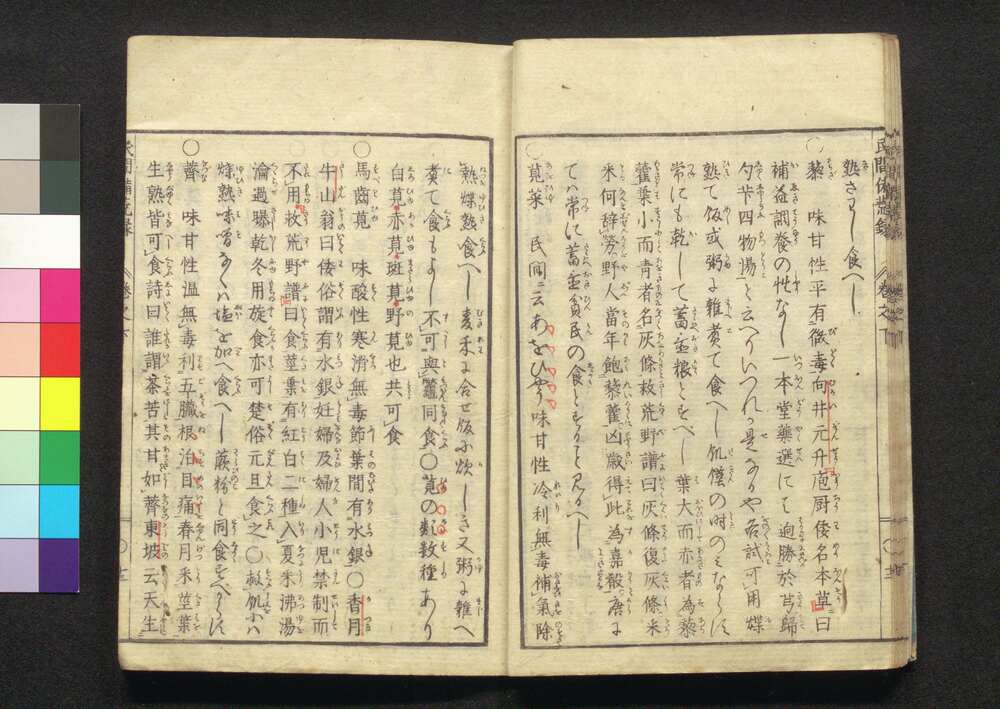 熟さわし食へし
○藜　味甘性平有微毒向井元升庖厨倭名本草曰
補益調養の性なし一本堂藥選にも廹勝於芎歸
勺芐四物湯と云へりいつれか是なりや各試可用煠
熟て飯或粥よ雜煑て食へし飢饉の時のみならす
常にも乾して蓄置粮とすべし葉大而赤者為藜
藿葉小而青者名灰條救荒野譜曰灰條復灰條采
采何辞勞野人當年飽藜藿凶歳得此為嘉殽
ては常に蓄置貧民の食とすると見るへし
○莧菜　民間ニ云あをひやう味甘性冷利無毒補氣除
熱煠熟食へし麦禾に合せ飯に炊しき又粥に雜へ
煑て食もよし不可與鼈同食○莧の類数種あり
白莧赤莧斑莧野莧也共可食
○馬齒莧　味酸性寒滑無毒節葉間有水銀○香月
牛山翁曰倭俗謂有水銀妊婦及婦人小児禁制而
不用救荒野譜曰食莖葉有紅白二種入夏采沸湯
瀹過曝乾冬用旋食亦可楚俗元旦食之○救飢は
煠熟味噌なくは塩を加へ食へし蕨粉と同食すへからす
○薺　味甘性温無毒利五臓根治目痛春月采莖葉
生熟皆可食詩曰誰謂荼苦其甘如薺東坡云天生
民間備荒録
巻之下